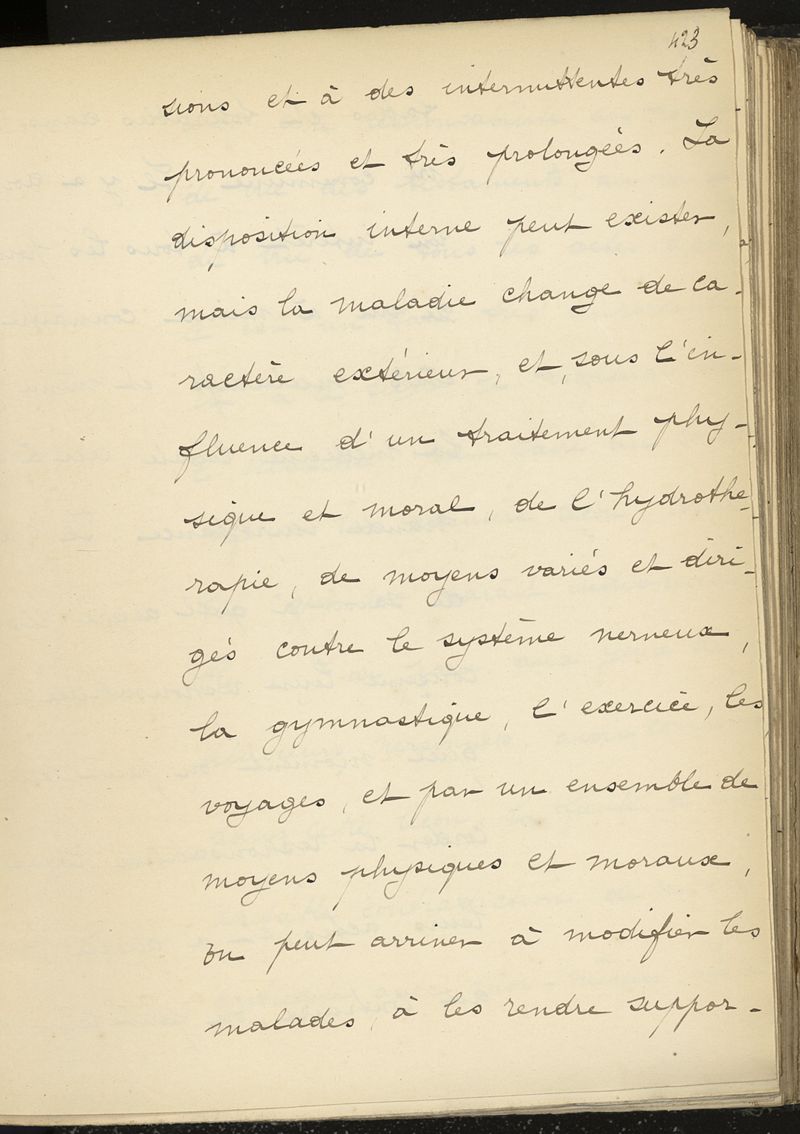 423
sions et à des intermittentes très
prononcées et très prolongées. La
disposition interne peut exister,
mais la maladie change de ca-
ractère extérieur, et, sous l'in-
fluence d'un traitement phy-
sique et moral, de l'hydrothe-
rapie, de moyens variés et diri-
gés contre le système nerveux,
la gymnastique, l'exercice, les
voyages, et par un ensemble de
moyens physiques et moraux,
on peut arriver à modifier les
malades, à les rendre suppor-